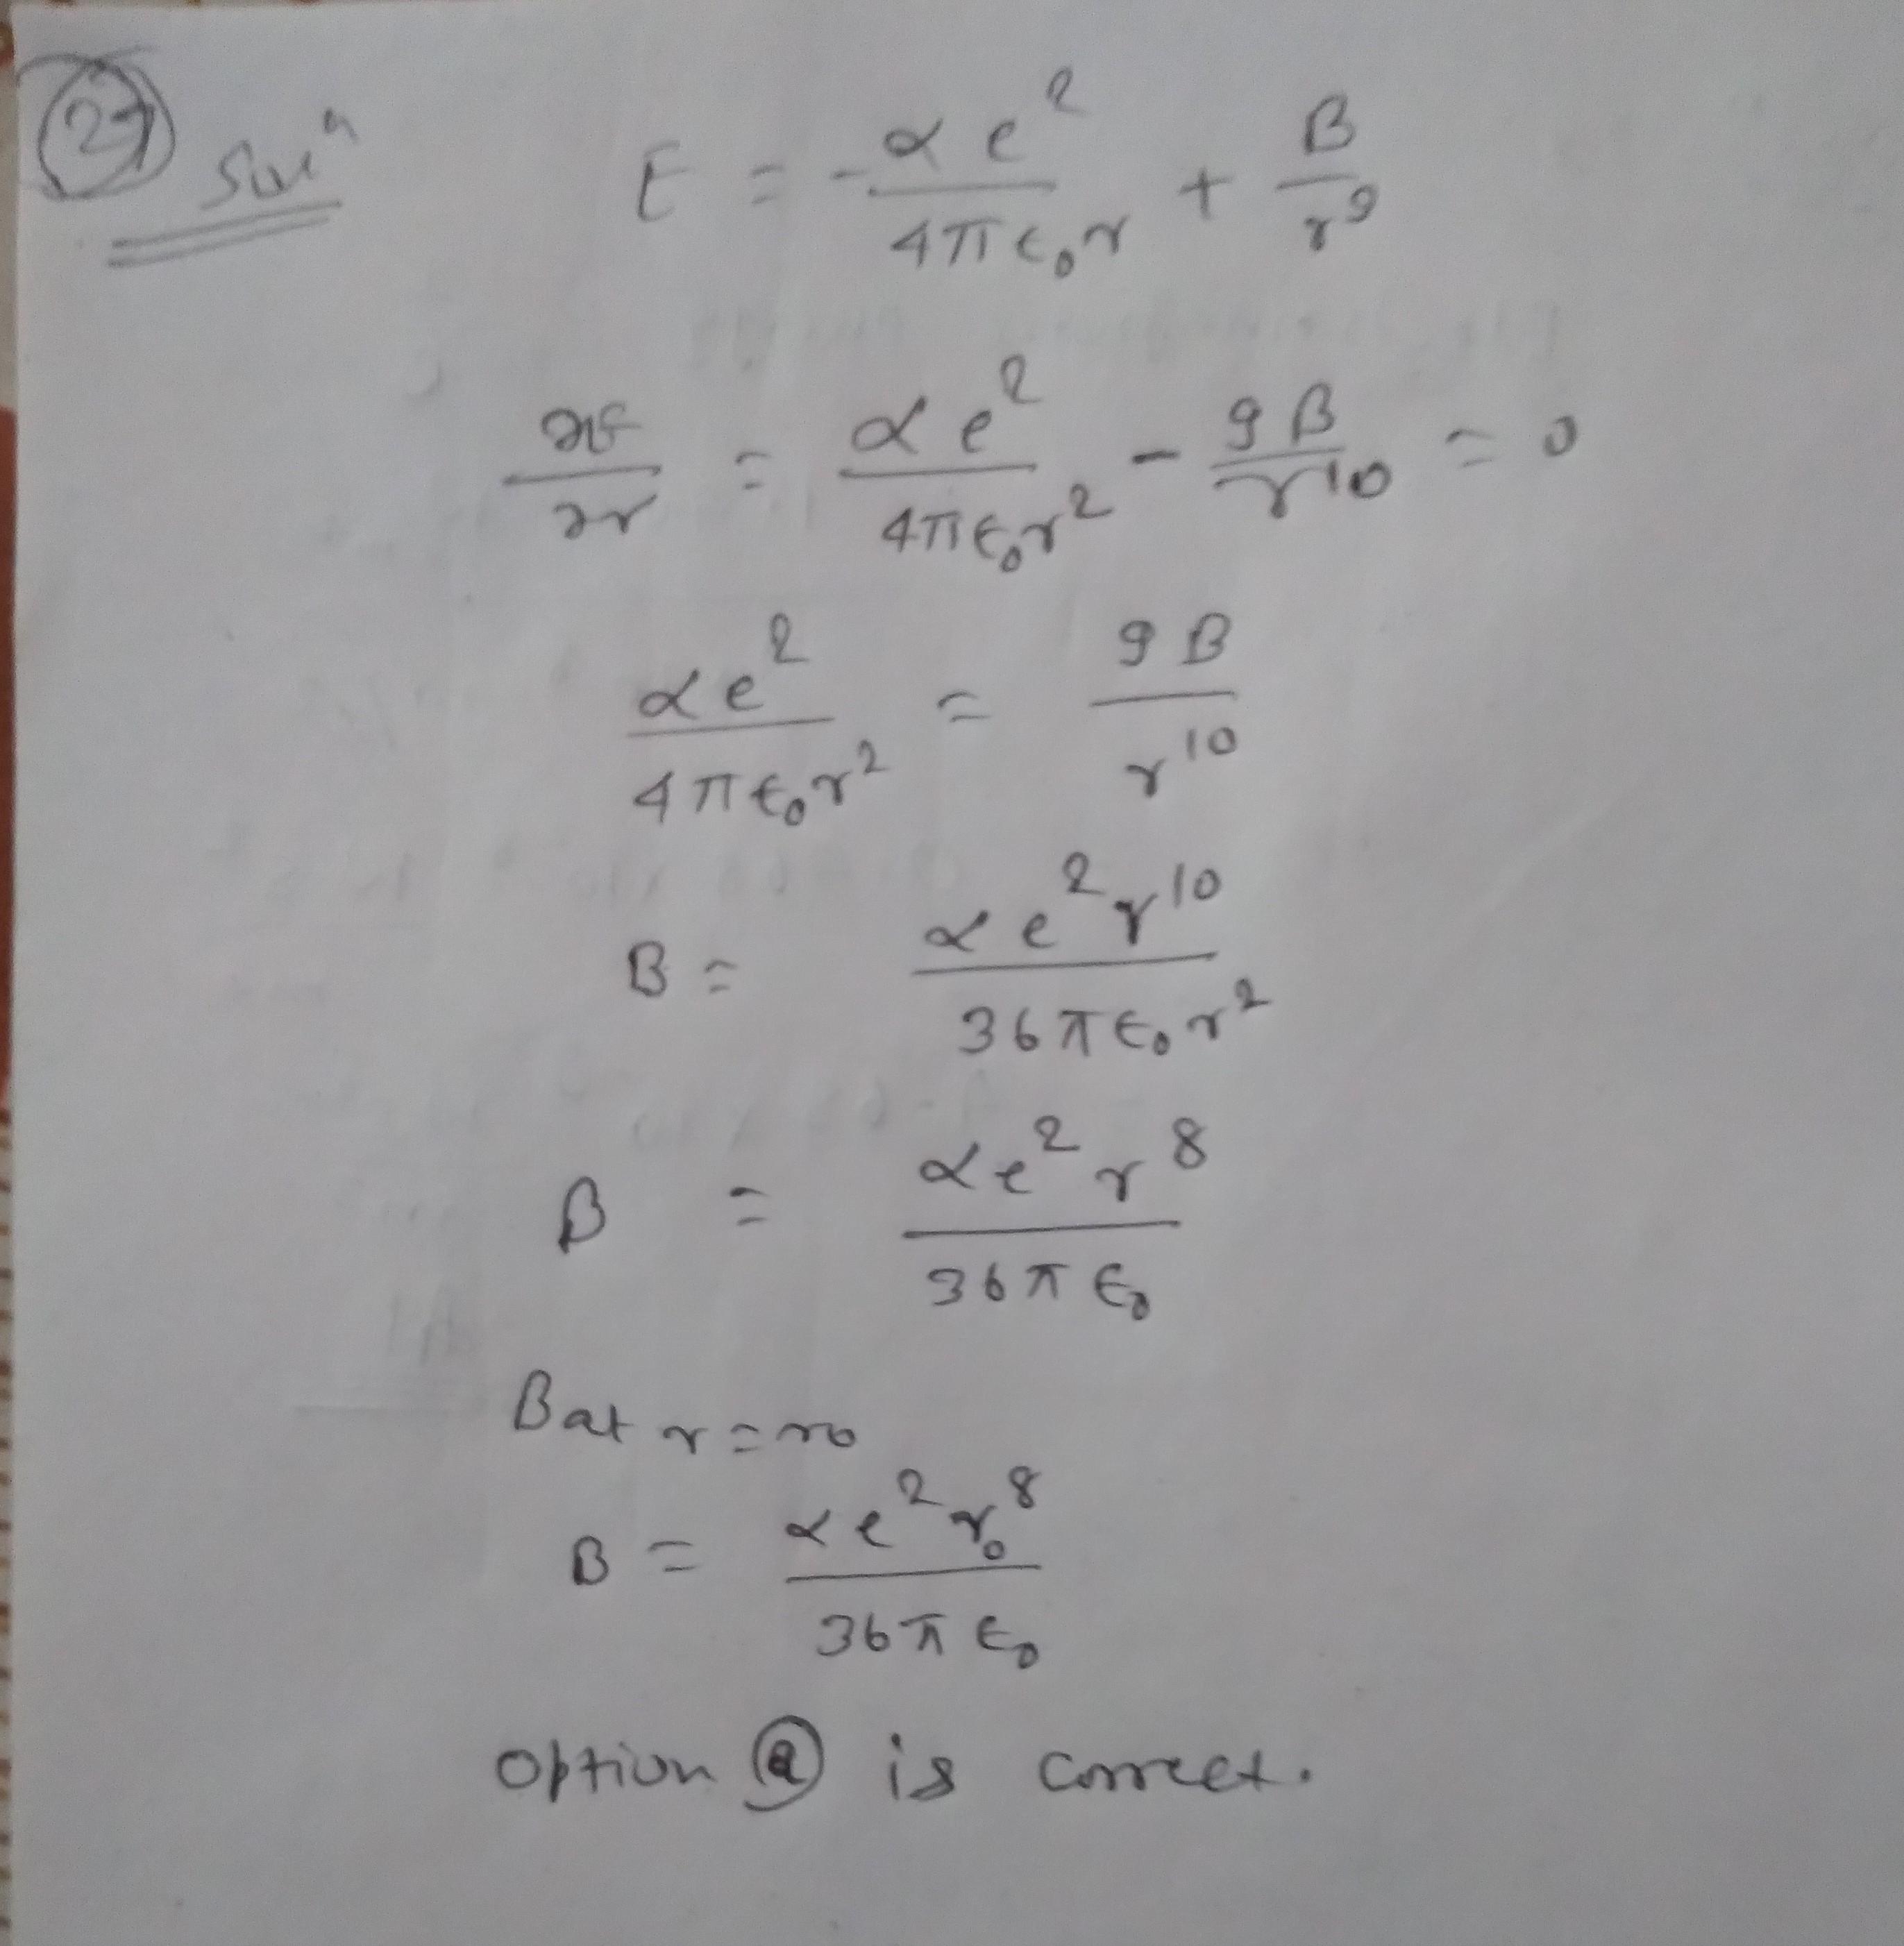 27 Solⁿ
E = -αe²/4π∈₀r + B/r⁹
∂E/∂r = αe²/4π∈₀r² - 9B/r¹⁰ = 0
αe²/4π∈₀r² = 9B/r¹⁰
B = αe²r¹⁰/36π∈₀r²
β = αe²r⁸/36π∈₀
B at r = r₀
B = αe²r₀⁸/36π∈₀
Option ⓐ is correct.